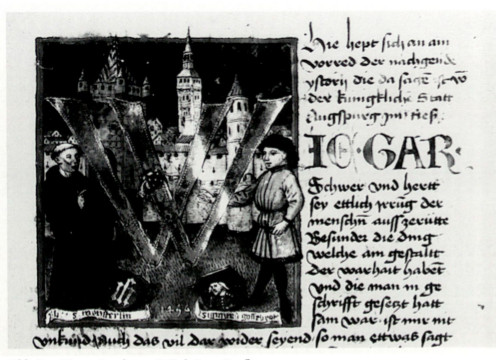 Hie hept sich an am
vorred der nachgende
ystorij die da sagt
der kungkliche Statt
Augspurg
IO·GAR·
Schwer vnd hertt
sey ettlich yrrug der
menschñ auss zerütte
Besunder die ding
welche am gestalt
der warhait habẽt
vnd die man in ge
schrifft gesetzt hatt
sam war ist mir nit
vnkund Auch das vil dar wider seyend so man ettwas sagt